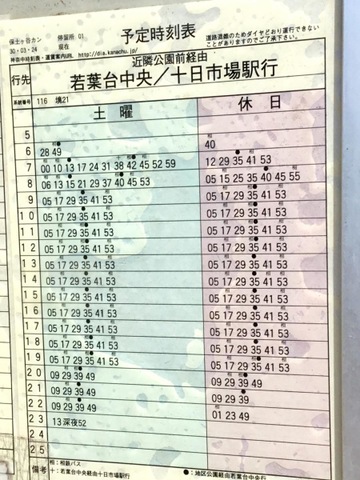 保土ヶ谷カン 停留所 01
30・03・24 現在
予定時刻表
道路混雑のためダイヤどおり運行できない
ことがありますのでご了承下さい。
神奈中時刻表・運賃案内URL http://dia.kanachu.jp/
行先 近隣公園前経由
若葉台中央/十日市場駅行
系統番号 116 境21
土曜 休日
5
6 28 49 40
7 00 10 13 17 24 31 38 42 45 52 59 12 29 35 41 53
8 06 13 15 21 29 37 40 45 53 05 15 25 35 40 45 55
9 05 17 29 35 41 53 05 17 29 35 41 53
10 05 17 29 35 41 53 05 17 29 35 41 53
11 05 17 29 35 41 53 05 17 29 35 41 53
12 05 17 29 35 41 53 05 17 29 35 41 53
13 05 17 29 35 41 53 05 17 29 35 41 53
14 05 17 29 35 41 53 05 17 29 35 41 53
15 05 17 29 35 41 53 05 17 29 35 41 53
16 05 17 29 35 41 53 05 17 29 35 41 53
17 05 17 29 35 41 53 05 17 29 35 41 53
18 05 17 29 35 41 53 05 17 29 35 41 53
19 05 17 29 35 41 53 05 17 29 35 41 53
20 09 29 39 49 09 29 39 49
21 09 29 39 49 09 29 39 49
22 09 29 39 49 09 29 39
23 13 深夜52 01 23 49
24
25
備考 相:相鉄バス ●:地区公園経由若葉台中央行
十:若葉台中央経由十日市場駅行